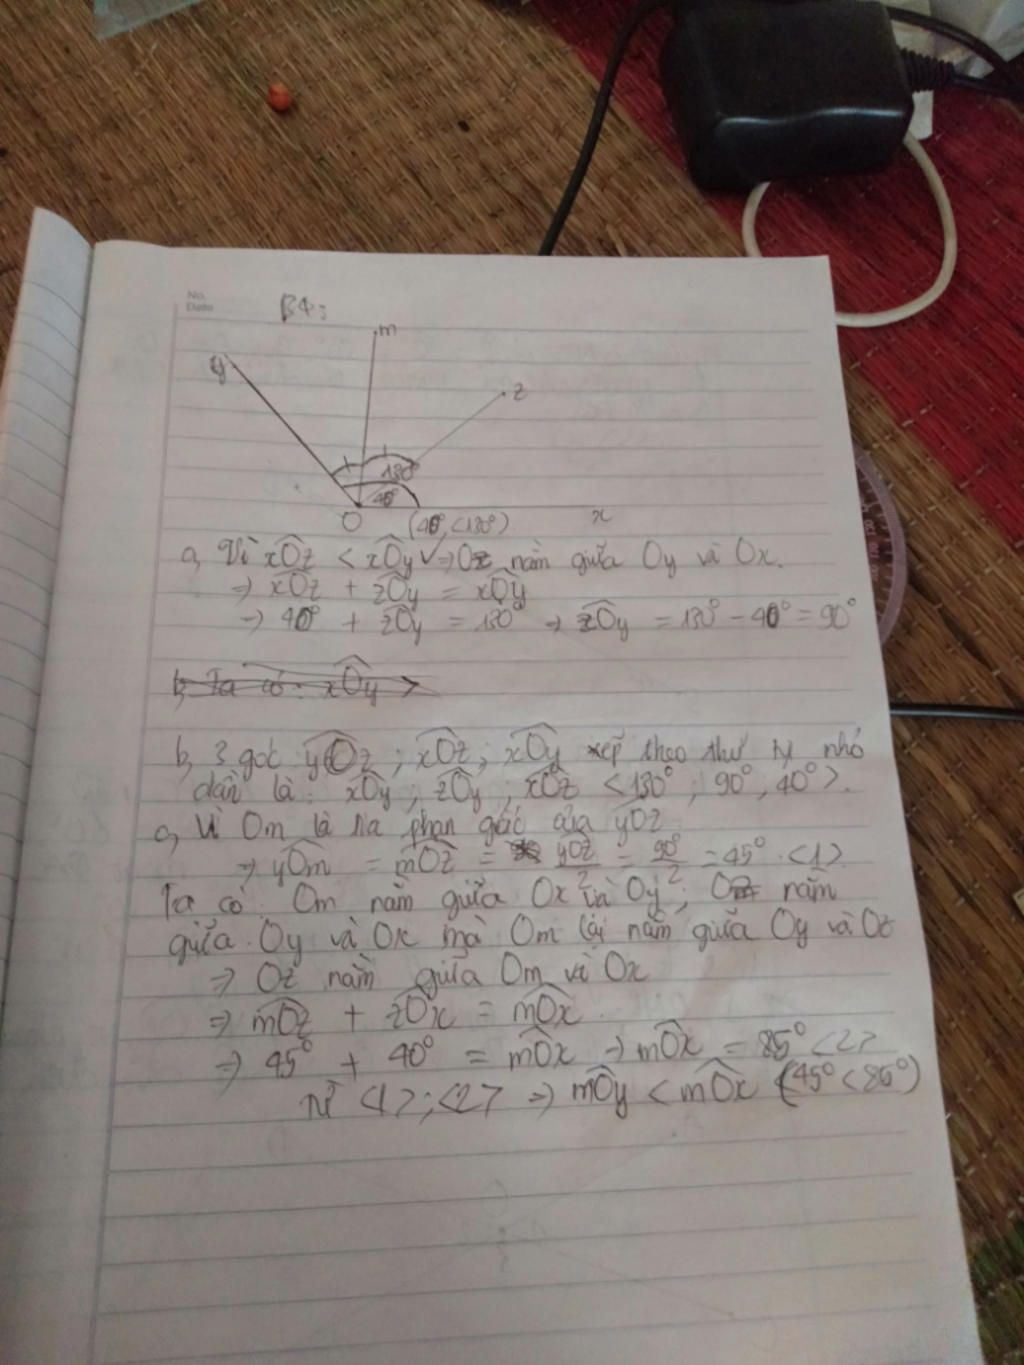 No.
Date
B4:
m
y
z
130°
40°
O
(40° < 130°)
x
a, Vì xOz < xOy => Oz nằm giữa Oy và Ox.
=> xOz + zOy = xOy
=> 40° + zOy = 130° => zOy = 130° - 40° = 90°
b, Ta có: xOy >
b, 3 góc yOz ; xOz ; xOy xếp theo thứ tự nhỏ
dần là: xOy ; zOy ; xOz <130° ; 90° , 40°>.
c, Vì Om là tia phân giác của yOz
=> yOm = mOz = yOz/2 = 90°/2 = 45° <1>
Ta có Om nằm giữa Ox và Oy ; Oz nằm
giữa Oy và Ox mà Om lại nằm giữa Oy và Oz
=> Oz nằm giữa Om và Ox
=> mOz + zOx = mOx
=> 45° + 40° = mOx => mOx = 85° <2>
Từ <1>;<2> => mOy < mOx (45° < 85°)